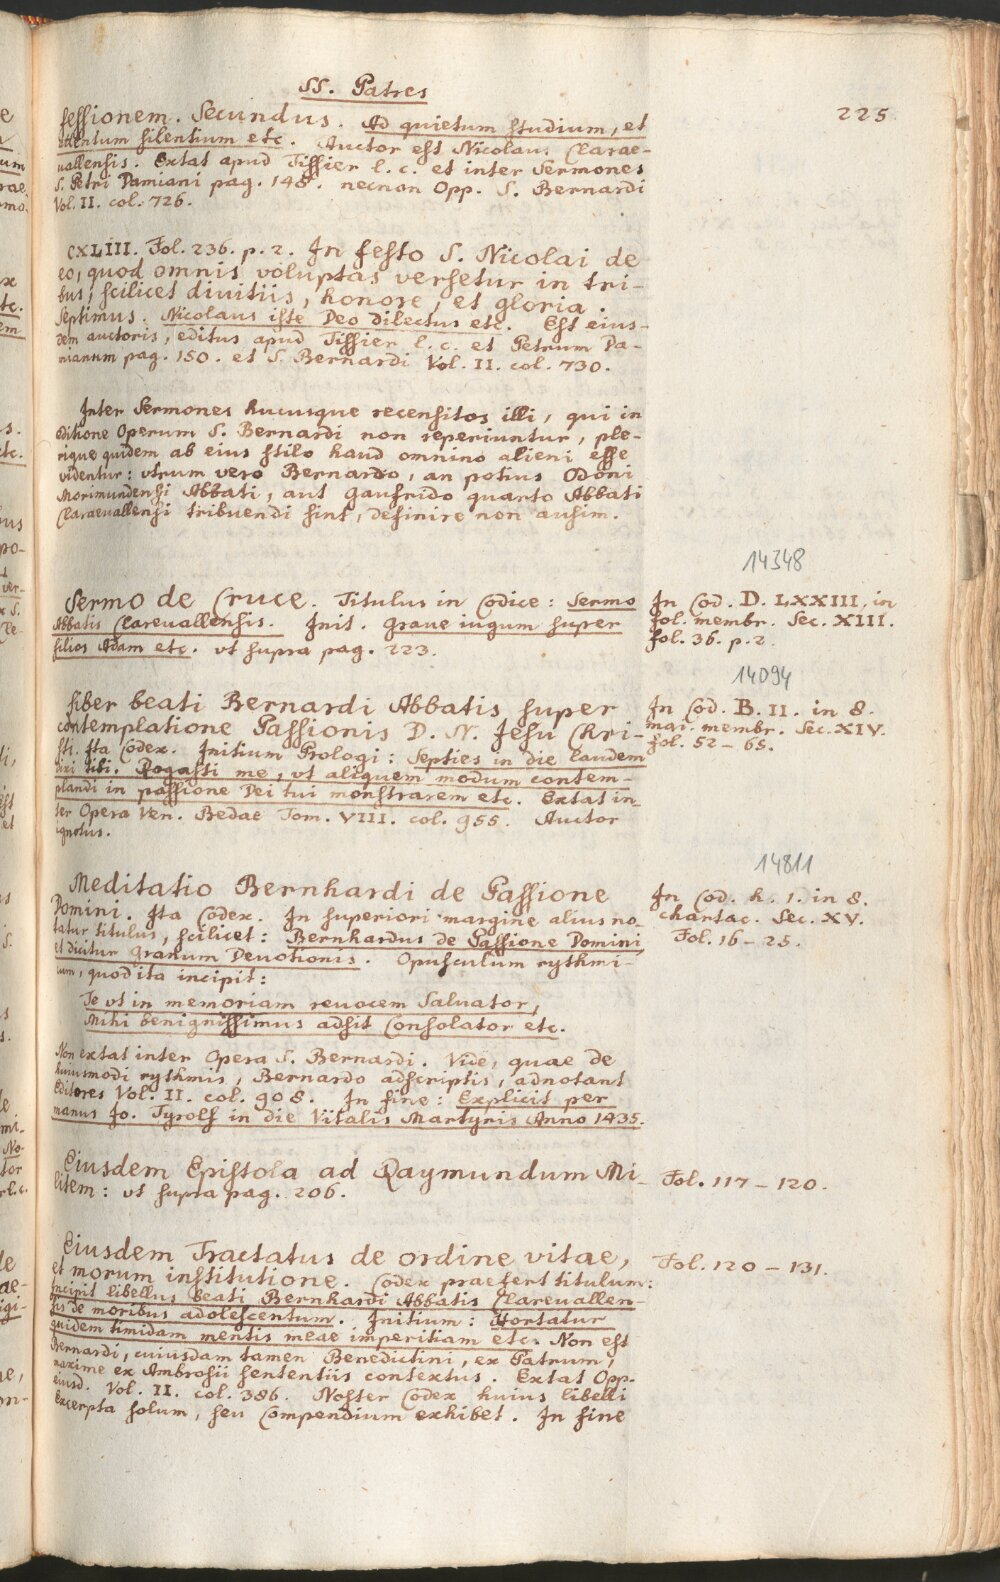 SS. Patres
225
sessionem. Secundus. Ad quietum studium, et
silentium etc. Auctor est Nicolaus Clarae-
vallensis. Extat apud Tissier l. c. et inter Sermones
S. Petri Damiani pag. 148. necnon Opp. S. Bernardi
Vol. II. col. 726.
CXLIII. Fol. 236. p. 2. In festo S. Nicolai de
eo, quod omnis voluptas versetur in tri-
bus, scilicet divitiis, honore, et gloria.
Septimus. Nicolaus iste Deo dilectus etc. Est eius-
dem auctoris, editus apud Tissier l. c. et Petrum Da-
mianum pag. 150. et S. Bernardi Vol. II. col. 730.
Inter Sermones hucusque recensitos illi, qui in
editione Operum S. Bernardi non reperiuntur, ple-
rique quidem ab eius stilo haud omnino alieni esse
videntur: utrum vero Bernardo, an potius Odoni
Morimundensi Abbati, aut Gaufrido quarto Abbati
Claraevallensi tribuendi sint, definire non ausim.
14348
Sermo de Cruce. Titulus in Codice: Sermo
Abbatis Clarevallensis. Init. Grave iugum super
filios Adam etc. vt supra pag. 223.
In Cod. D. LXXIII. in
fol. membr. Sec. XIII.
fol. 36. p. 2.
14094
Liber beati Bernardi Abbatis super
contemplatione Passionis D. N. Jesu Chri-
sti. Ita Codex. Initium Prologi: Septies in die laudem
dixi tibi. Rogasti me, vt aliquem modum contem-
plandi in passione Dei tui monstrarem etc. Extat in-
ter Opera Ven. Bedae Tom. VIII. col. 955. Auctor
ignotus.
In Cod. B. II. in 8.
mai. membr. Sec. XIV.
fol. 52 - 65.
14811
Meditatio Bernhardi de Passione
Domini. Ita Codex. In superiori margine alius no-
tatur titulus, scilicet: Bernhardus de Passione Domini,
et dicitur Granum Devotionis. Opusculum rythmi-
cum, quod ita incipit:
Te vt in memoriam revocem Salvator,
Mihi benignissimus adsit Consolator etc.
Non extat inter Opera S. Bernardi. Vide, quae de
huiusmodi rythmis, Bernardo adscriptis, adnotant
Editores Vol. II. col. 908. In fine: Explicit per
manus Jo. Tyrolf in die Vitalis Martyris Anno 1435.
In Cod. h. 1. in 8.
chartac. Sec. XV.
Fol. 16 - 25.
Eiusdem Epistola ad Raymundum Mi-
litem: vt supra pag. 206.
Fol. 117 - 120.
Eiusdem Tractatus de ordine vitae,
et morum institutione. Codex praefert titulum:
Incipit libellus beati Bernhardi Abbatis Clarevallen-
sis de moribus adolescentum. Initium: Hortatur
quidem timidam mentis meae imperitiam etc. Non est
Bernardi, cuiusdam tamen Benedictini, ex Patrum,
maxime ex Ambrosii sententiis contextus. Extat Opp.
eiusd. Vol. II. col. 386. Noster Codex huius libelli
Excerpta solum, seu Compendium exhibet. In fine
Fol. 120 - 131.